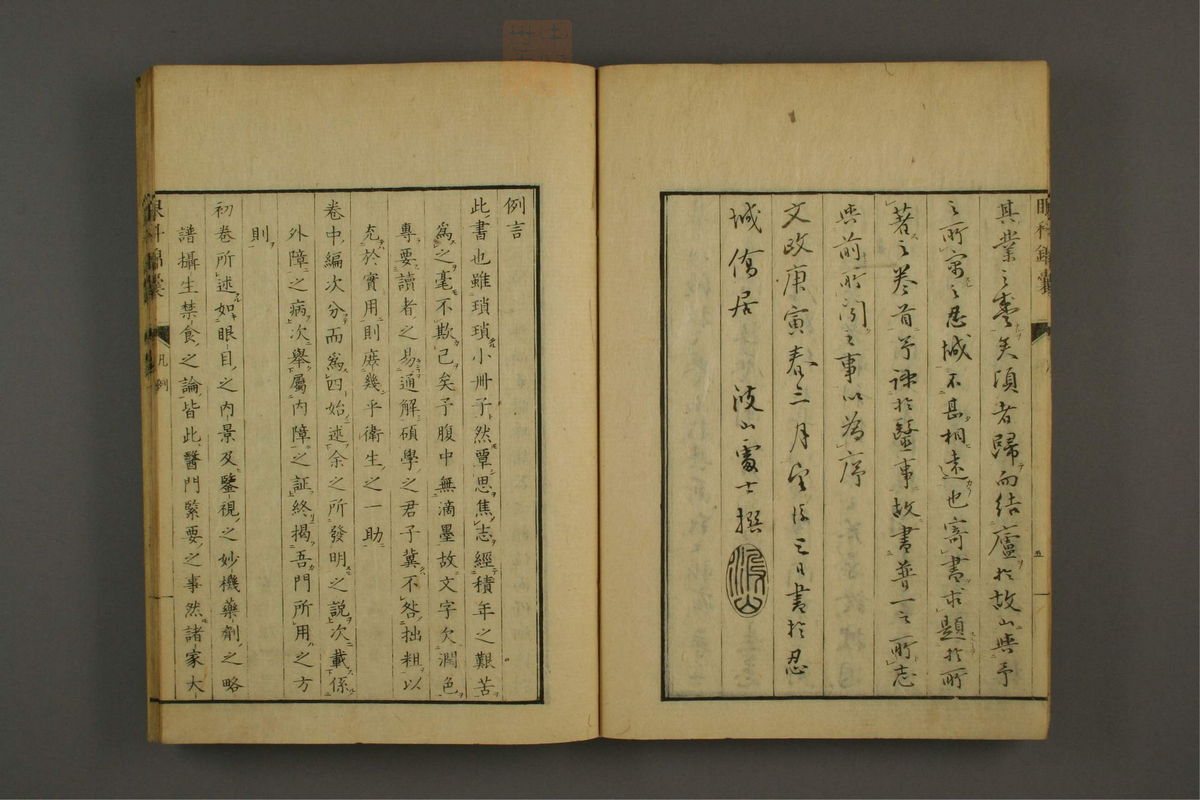 其業之壼矣須者歸而結廬於故山與予
之所寓之忍城不甚相遠也寄書求題於所
著之卷首予疎於醫事故書普一之所志
與前所聞之事以為序
文政庚寅春三月望後三日書於忍
城僑居 波山處士撰
波山
眼科錦囊
五
例言
此書也雖瑣瑣小冊子然覃思焦志經積年之艱苦
為之毫不欺己矣予腹中無滴墨故文字欠潤色
專要讀者之易通解碩學之君子冀不咎拙粗以
充於實用則庶幾乎衛生之一助
卷中編次分而為四始述余之所發明之説次載係
外障之病次舉屬内障之証終揭吾門所用之方
則
初卷所述如眼目之内景及鑒視之妙機藥劑之略
譜攝生禁食之論皆此醫門緊要之事然諸家大
眼科錦囊
凡例